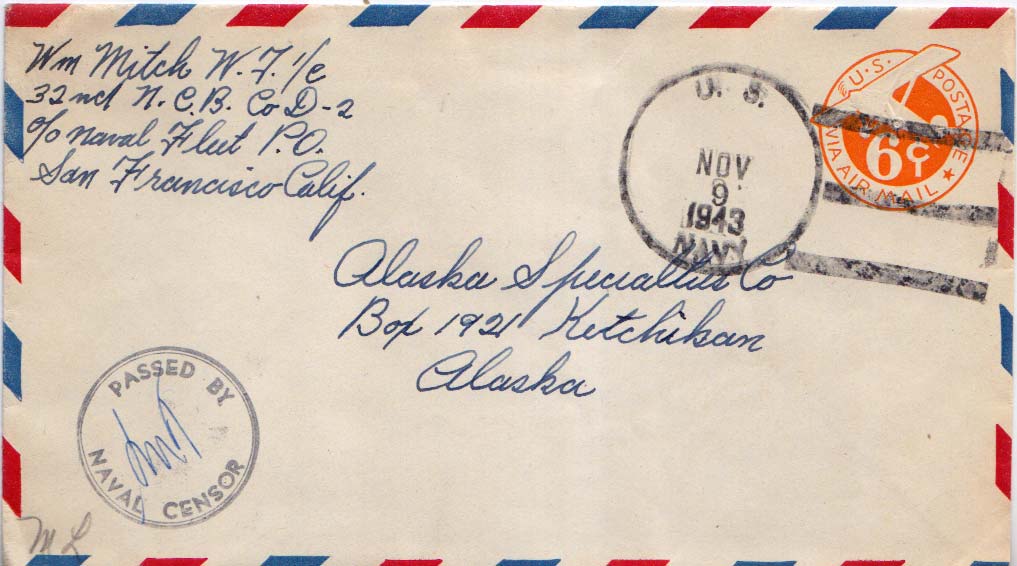 Wm Mitch W. T. 1/c
32nd N. C. B. Co D-2
c/o Naval Fleet P.O.
San Francisco Calif.
U. S.
NOV
9
1943
NAVY
U.S. POSTAGE
6¢
VIA AIR MAIL
Alaska Specialties Co
Box 1921 Ketchikan
Alaska
PASSED BY
NAVAL CENSOR
ML